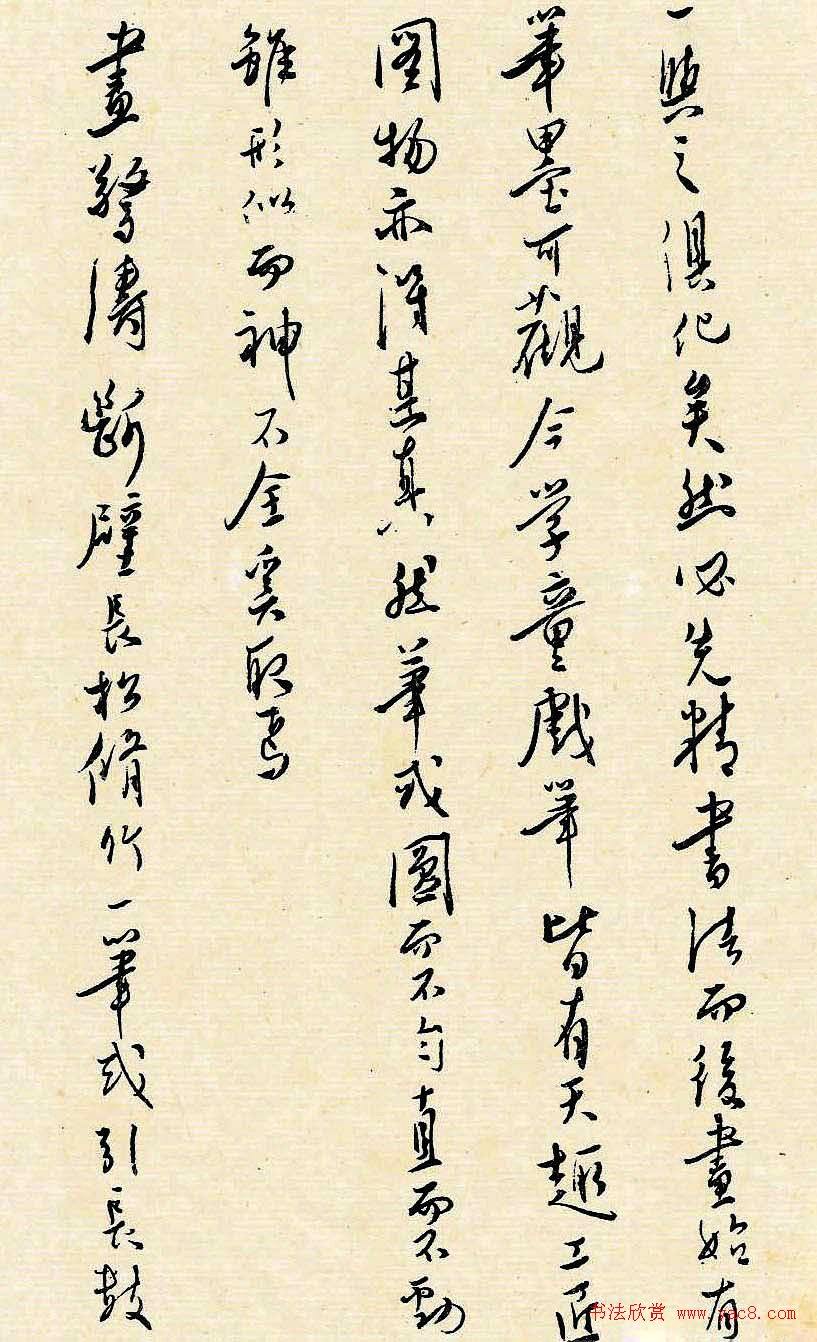 一與之俱化矣然必先精書法而後畫始有
筆墨可觀今学童戲筆皆有天趣工匠
图物亦得其真然筆或圓而不勻直而不動
雖形似而神不全奚取焉
畫驚濤斷壁長松脩竹一筆或引長鼓
书法欣赏 www.yac8.com